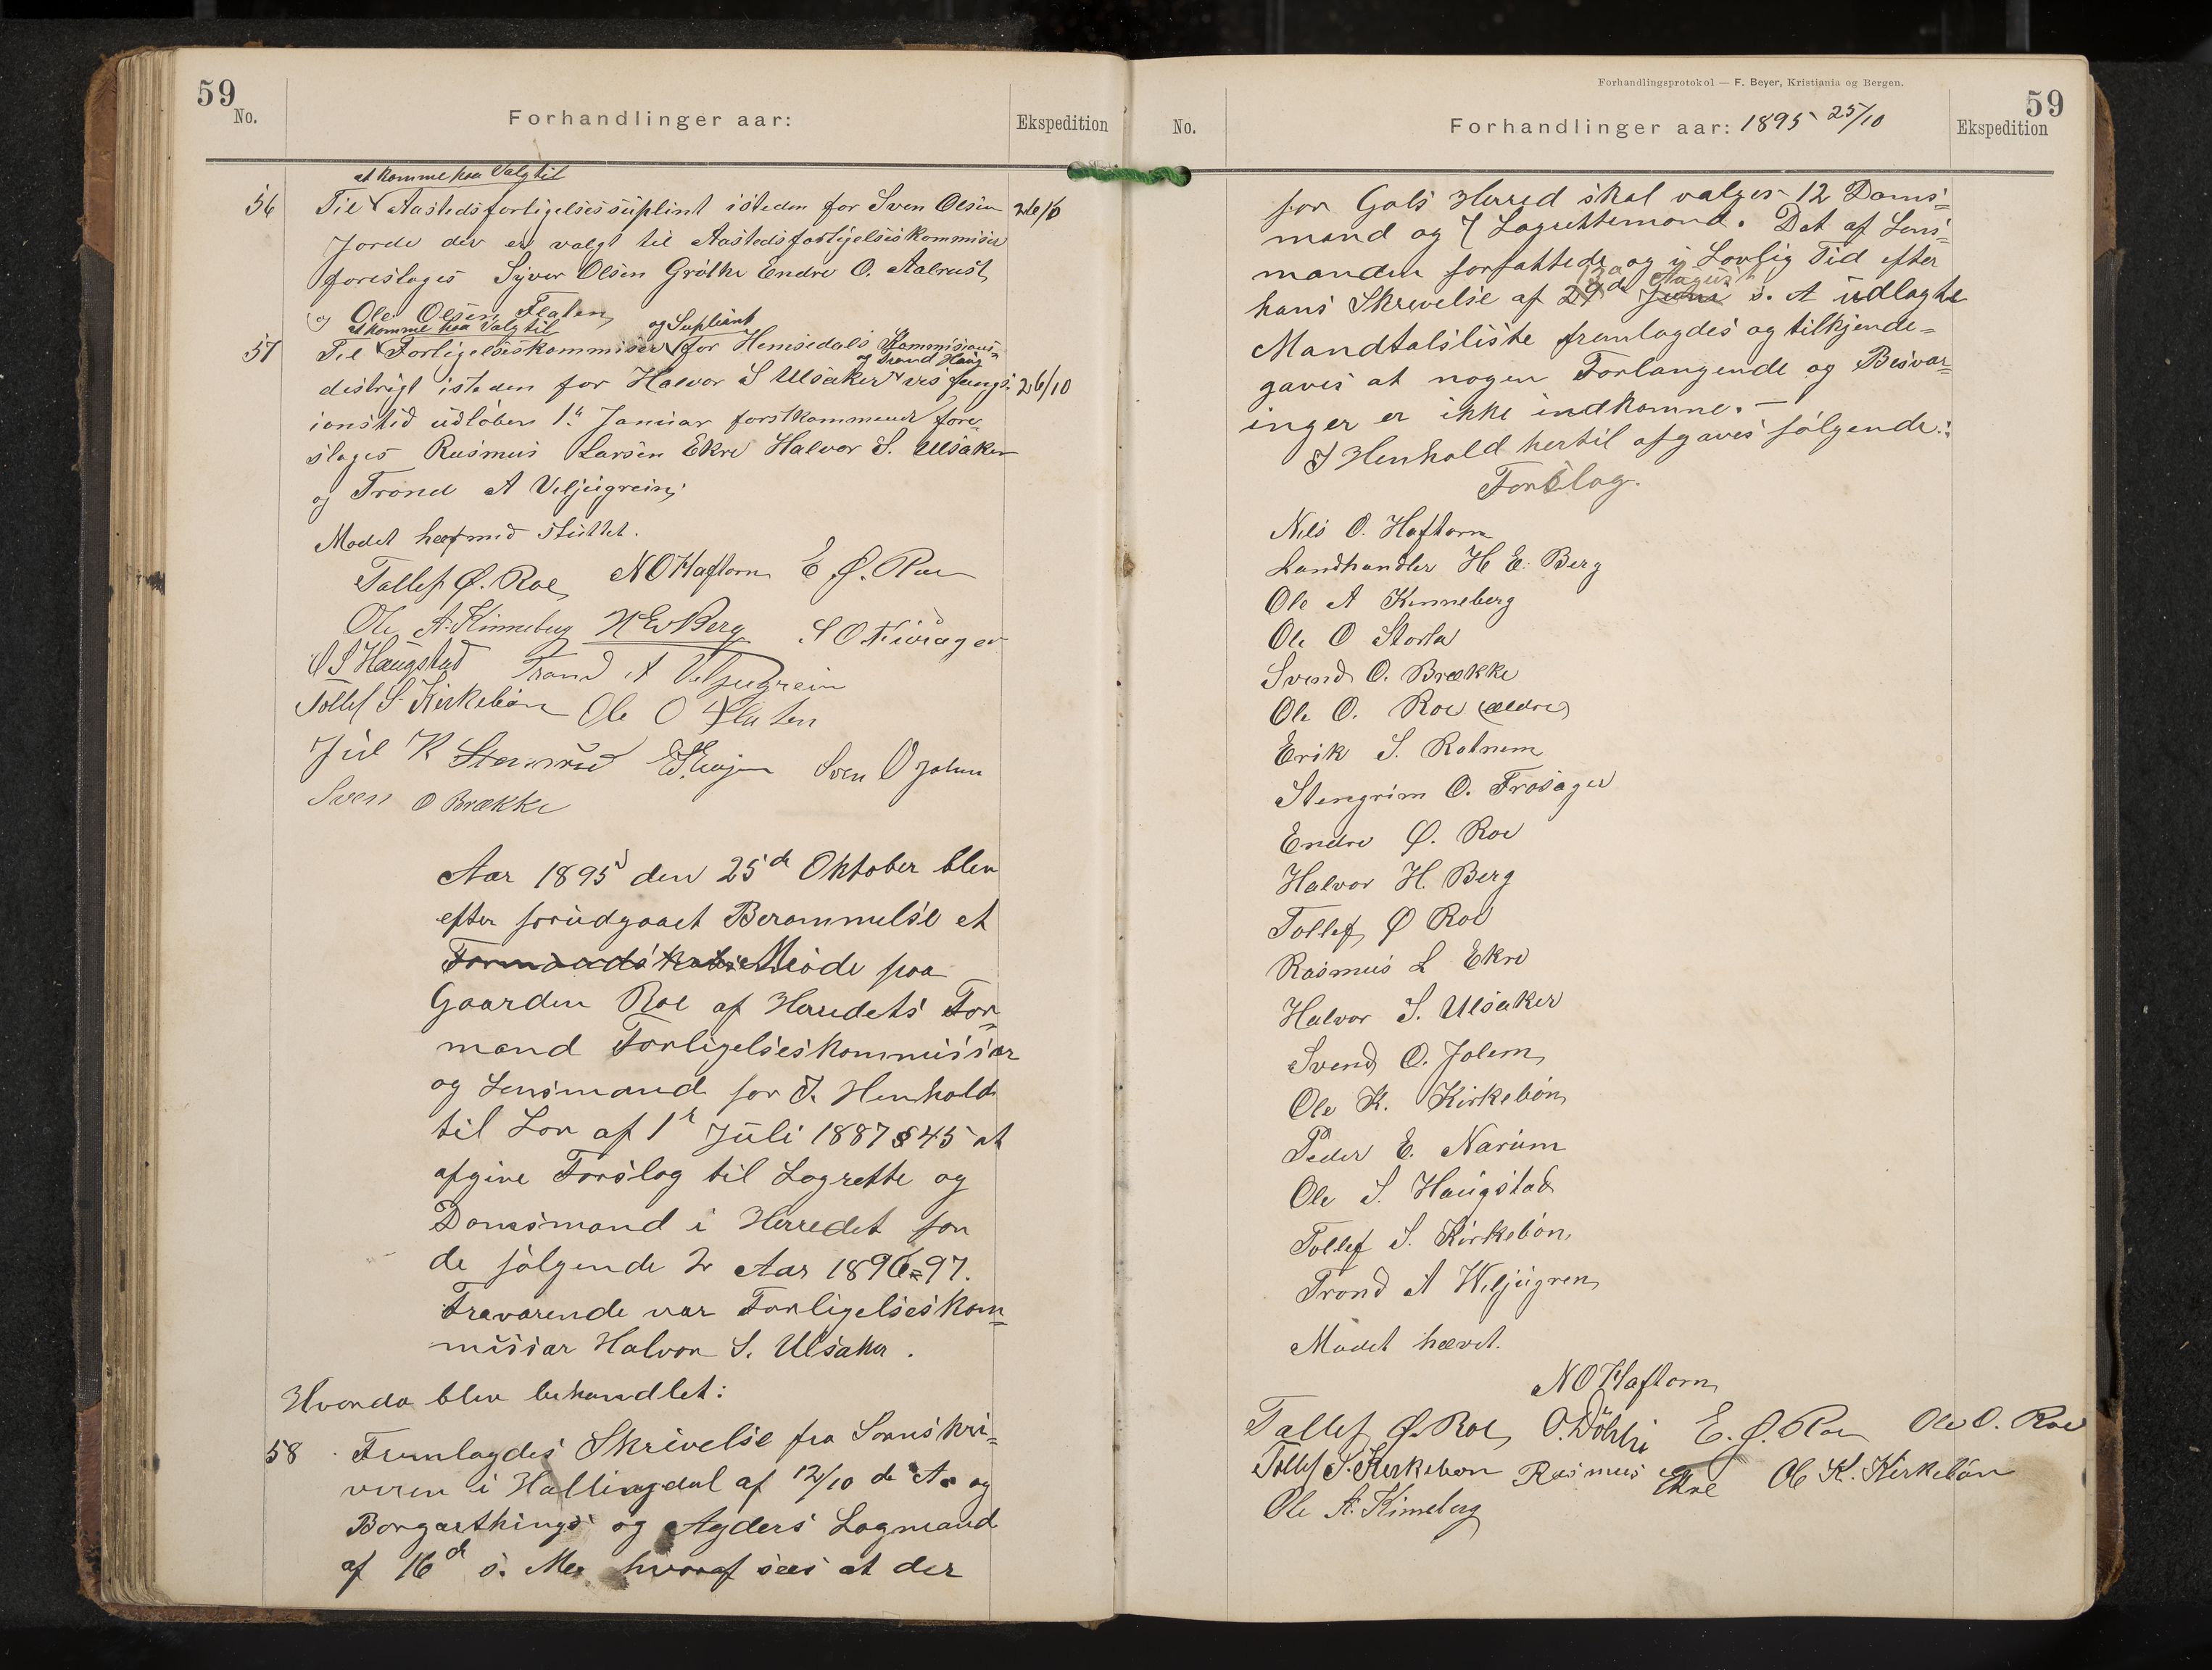 59
No.
Forhandlinger aar:
Ekspedition
at komme paa Valg til
56 Til Aastedsforligelsessuplint isteden for Sven Olsen 26/10
Jorde der er valgt til Aastedsforligelseskommisær
foreslages Syver Olsen Grøthe Endre O. Aalrust
og Ole Olsen Flaten
at komme paa Valg til og Supliant
57 Til Forligelseskommisær for Hemsedals Kommisions-
og Trond Haug
destrigt isteden for Halvor S Ulsaker vis fungs- 26/10
ionstid udløber 1ste Januar førstkommende fore-
slages Rasmus Larsen Ekre Halvor S. Ulsaker
og Trond A Veljugrein;
Mødet hermed sluttet.
Tollef Ø. Roe NOHaftorn E Ø. Roe
Ole A. Kinneberg H E Berg S O
O S Haugstad Trond A Veljugrein
Tollef S. Kirkebøn Ole O Flaten
Jul K Stensrud Sven O Jolem
Sven O Brække
Aar 1895 den 25de Oktober blev
efter forudgaaet Berammelse et
Formandskabs Møde paa
Gaarden Roe af Herredets For=
mand Forligelseskommissær
og Lensmand for I Henhold
til Lov af 1ste Juli 1887 § 45 at
afgive Forslag til Lagrette og
Domsmænd i Herredet for
de følgende 2 Aar 1896=97.
Fraværende var Forligelseskom=
missær Halvor S. Ulsaker.
Hvorda blev behandlet:
58 Fremlagdes Skrivelse fra Sorenskri=
veren i Hallingdal af 12/10 d. A. og
Borgarthings og Agders Lagmand
af 16de s. M. hvoraf sees at der
Forhandlingsprotokol — F. Beyer, Kristiania og Bergen.
59
No.
Forhandlinger aar: 1895 25/10
Ekspedition
for Gols Herred skal vælges 12 Doms=
mænd og 7 Lagrettemænd. Det af Lens=
manden forfattede og i Lovlig Tid efter
August
hans Skrivelse af 29de Juni s. A udlagte
Mandtalsliste fremlagdes og tilkjende=
gaves at nogen Forlangende og Besvær=
inger er ikke indkomne.—
I Henhold hertil afgaves følgende:
Forslag.
Nils O. Haftorn
Landhandler H E. Berg
Ole A Kinneberg
Ole O Storla
Svend O. Brække
Ole O. Roe (ældre)
Erik S. Rotnem
Stengrim O. Frøsager
Endre Ø. Roe
Halvor H. Berg
Tollef Ø Roe
Rasmus L Ekre
Halvor S. Ulsaker
Svend O. Jolem
Ole K. Kirkebøn
Peder E. Narum
Ole S. Haugstad
Tollef S. Kirkebøn
Trond A Wiljugren
Mødet hævet.
NOHaftorn
Tollef Ø. Roe O. Døhli E. Ø. Roe Ole O. Roe
Tollef S. Kirkebøn Rasmus Ekre Ole K. Kirkebøn
Ole A. Kinneberg